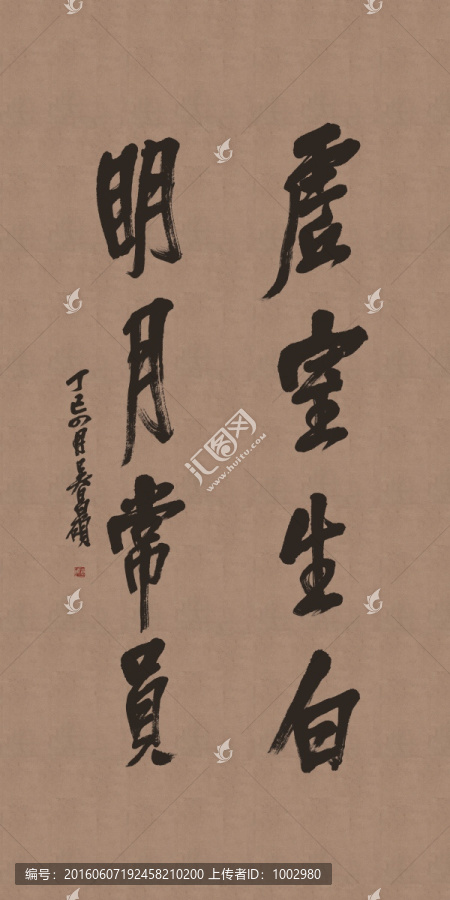 虚室生白
明月常員
丁巳四月吳昌碩
汇图网
www.huitu.com
编号：20160607192458210200 上传者ID：1002980